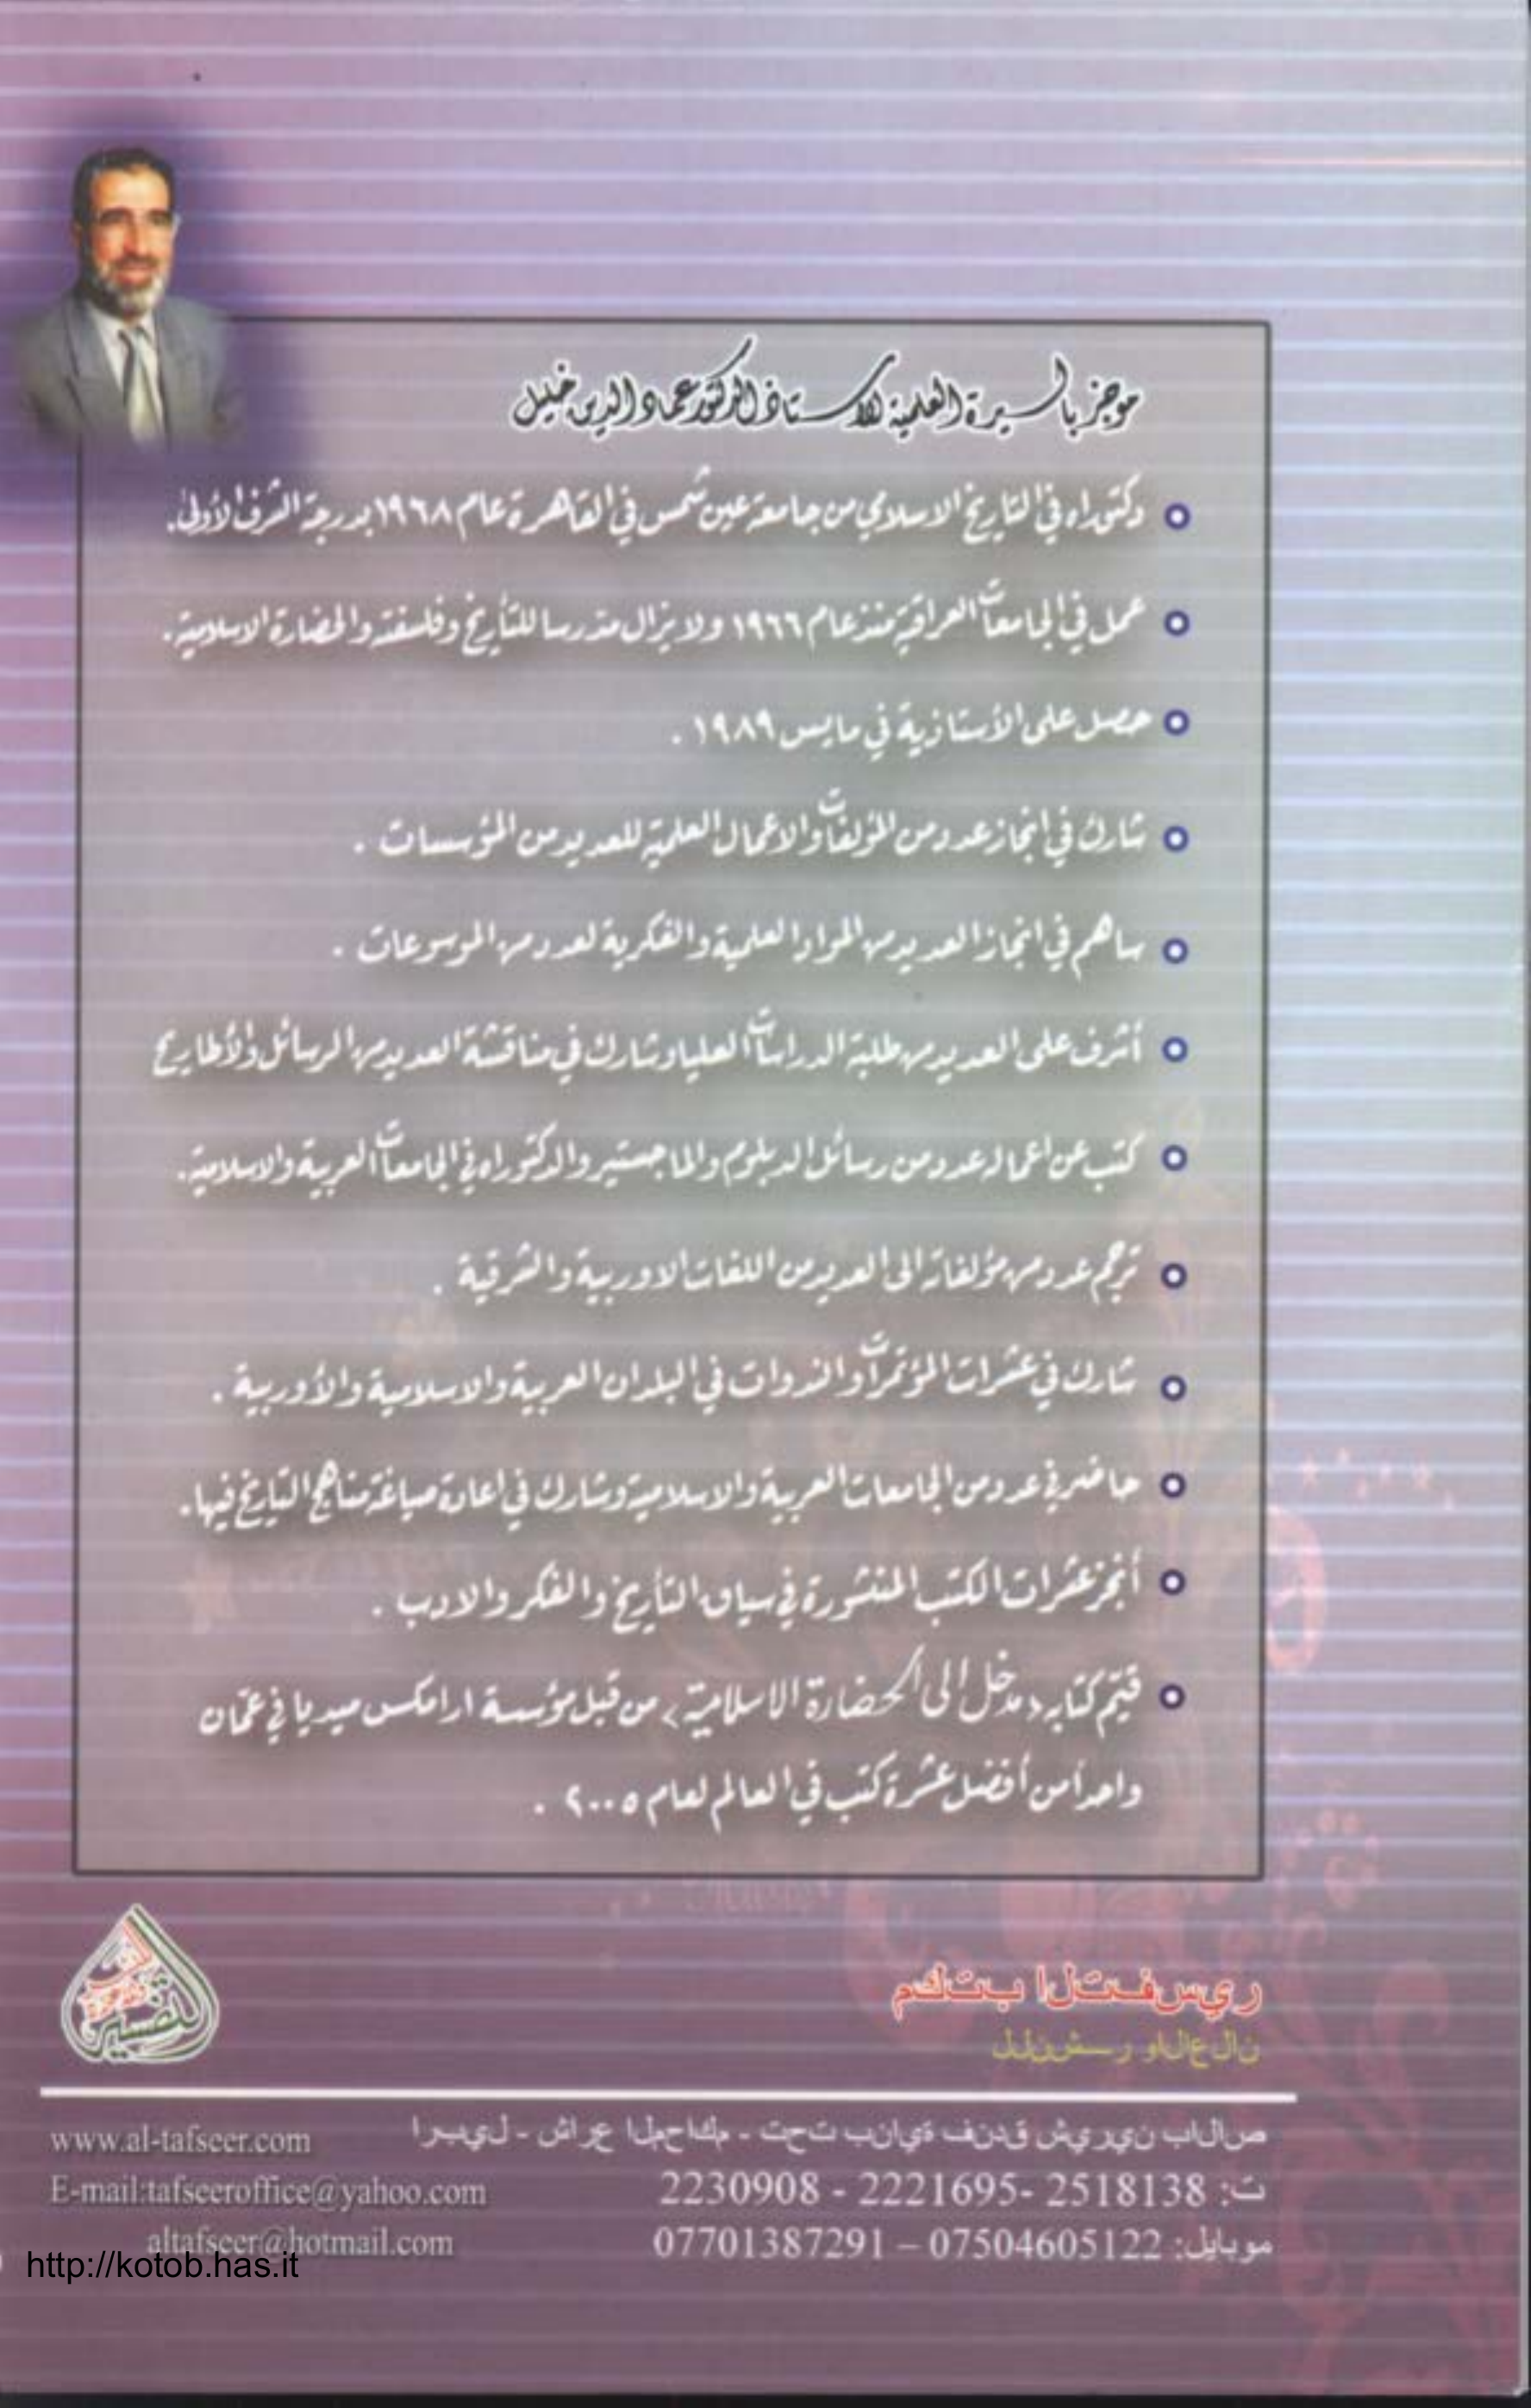 موجز بالسيرة العلمية للاستاذ الدكتور عماد الدين خليل
دكتوراه في التاريخ الاسلامي من جامعة عين شمس في القاهرة عام ١٩٦٨ بدرجة الشرف الأولى.
عمل في الجامعات العراقية منذ عام ١٩٦٦ ولا يزال مدرسا للتأريخ وفلسفته والحضارة الاسلامية.
حصل على الأستاذية في مايس ١٩٨٩ .
شارك في انجاز عدد من المؤلفات والاعمال العلمية للعديد من المؤسسات .
ساهم في انجاز العديد من المواد العلمية والفكرية لعدد من الموسوعات .
أشرف على العديد من طلبة الدراسات العليا وشارك في مناقشة العديد من الرسائل والأطاريح
كتب عن اعماله عدد من رسائل الدبلوم والماجستير والدكتوراه في الجامعات العربية والاسلامية.
ترجم عدد من مؤلفاته الى العديد من اللغات الاوربية والشرقية .
شارك في عشرات المؤتمرات والندوات في البلدان العربية والاسلامية والأوربية .
حاضر في عدد من الجامعات العربية والاسلامية وشارك في اعادة صياغة مناهج التاريخ فيها.
أنجز عشرات الكتب المنشورة في سياق التأريخ والفكر والادب .
قيّم كتابه (مدخل الى الحضارة الاسلامية) من قبل مؤسسة ارامكس ميديا في عمّان
واحداً من أفضل عشرة كتب في العالم لعام ٢٠٠٥ .
التفسير
مكتب التفسير
للنشر والاعلان
اربيل - شارع المحاكم - تحت بناية فندق شيرين بالاص
ت: 2518138 -2221695 - 2230908
موبايل: 07504605122 – 07701387291
www.al-tafseer.com
E-mail:tafseeroffice@yahoo.com
altafseer@hotmail.com
http://kotob.has.it